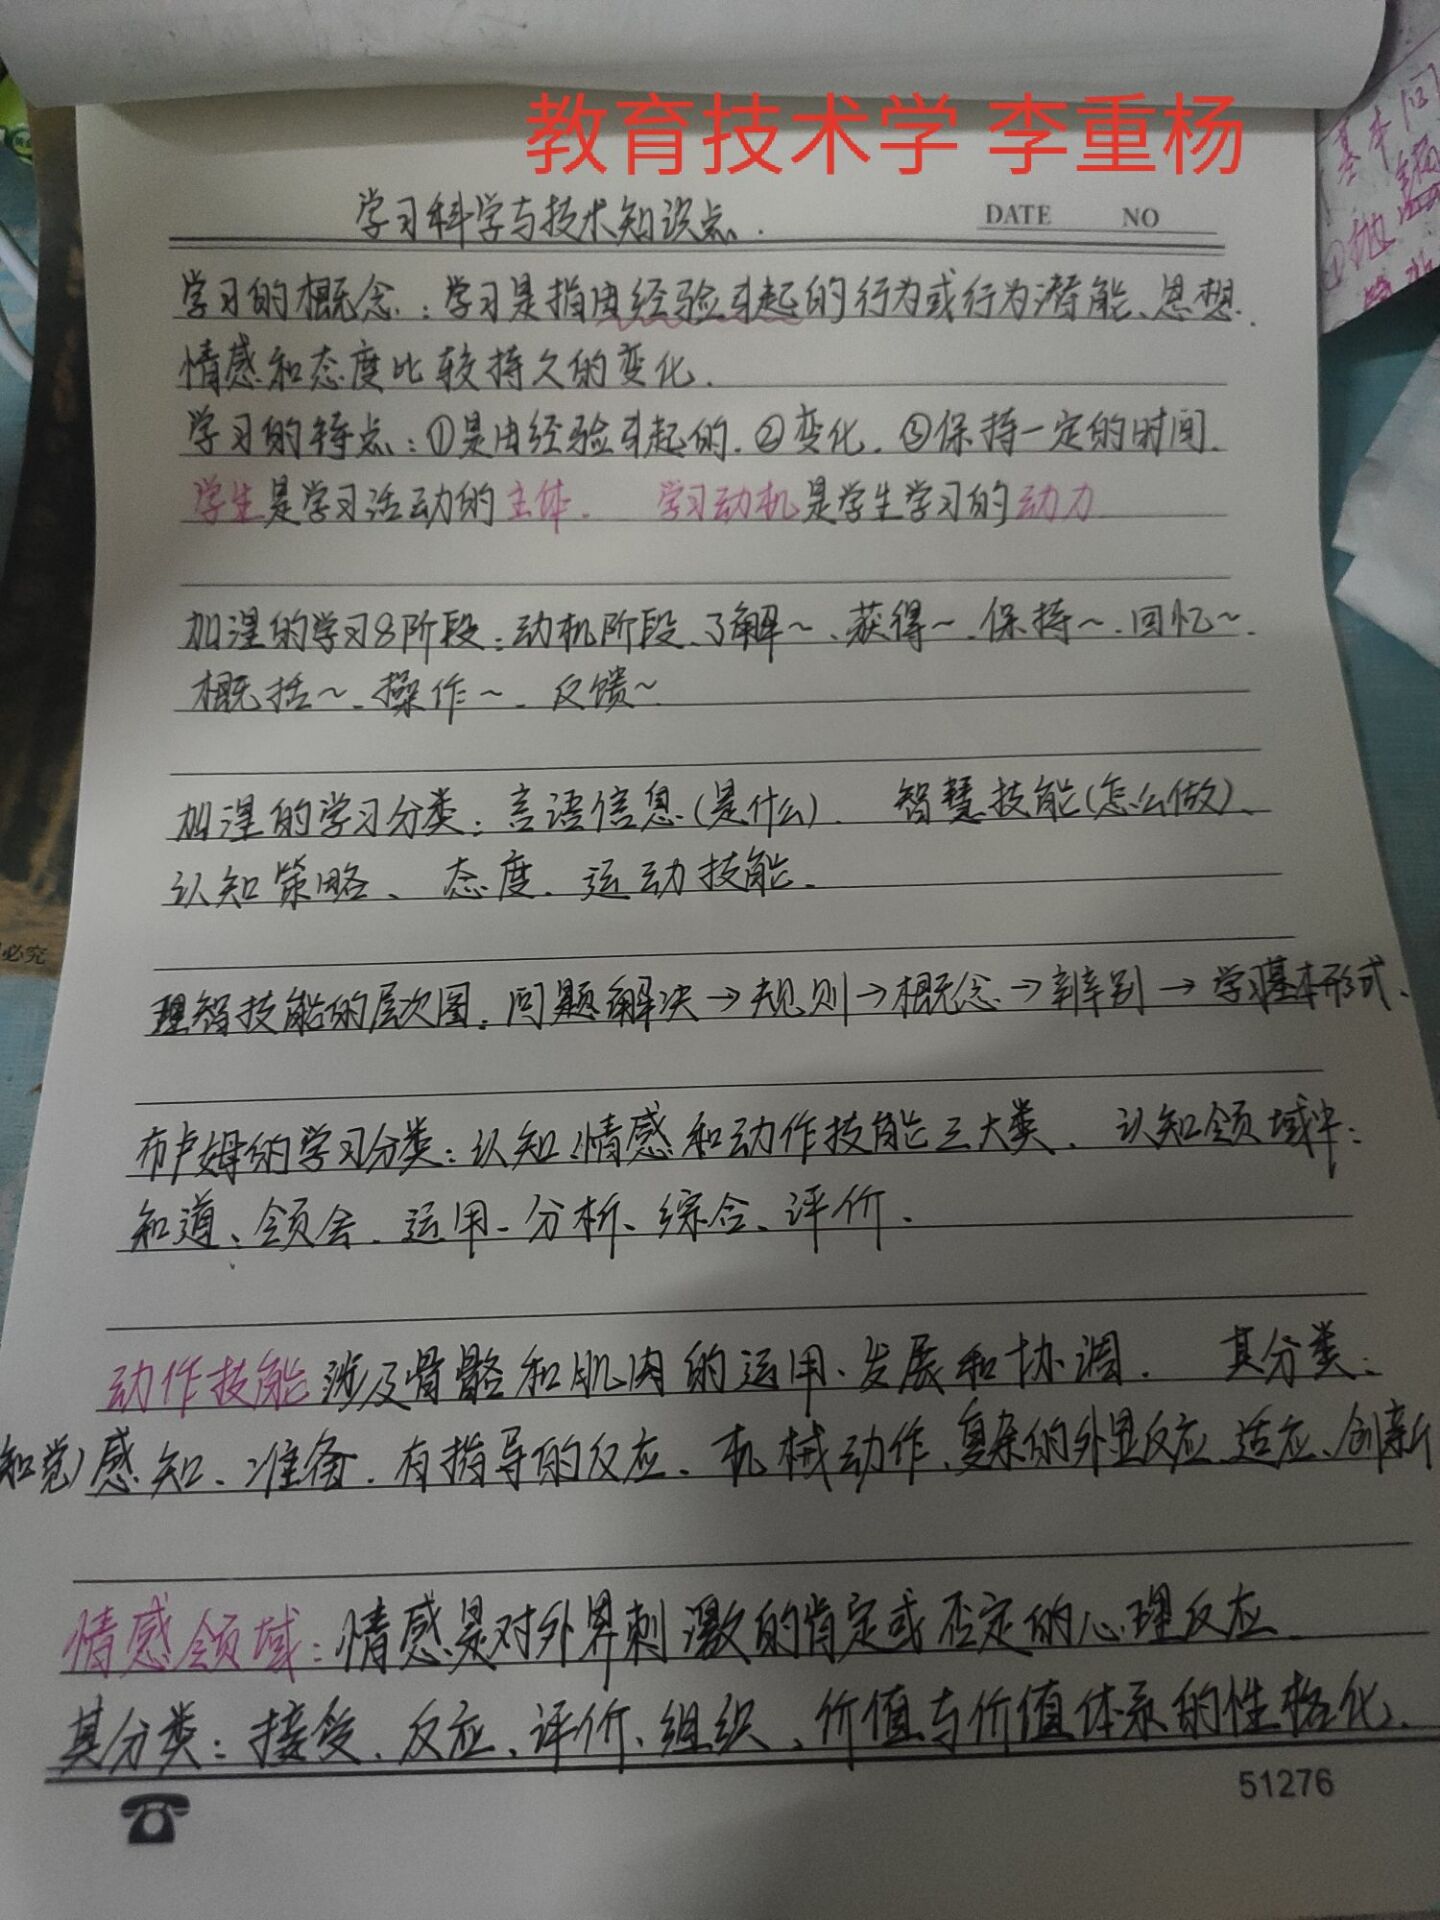 教育技术学 李重杨
学习科学与技术知识点.
DATE NO
学习的概念:学习是指由经验引起的行为或行为潜能、思想、
情感和态度比较持久的变化.
学习的特点:①是由经验引起的.②变化.③保持一定的时间.
学生是学习活动的主体. 学习动机是学生学习的动力
加涅的学习8阶段:动机阶段、了解~、获得~、保持~、回忆~、
概括~、操作~、反馈~.
加涅的学习分类:言语信息(是什么)、智慧技能(怎么做)、
认知策略、态度、运动技能.
理智技能的层次图:问题解决→规则→概念→辨别→学习基本形式.
布卢姆的学习分类:认知、情感和动作技能三大类. 认知领域中:
知道、领会、运用、分析、综合、评价.
动作技能涉及骨骼和肌肉的运用、发展和协调. 其分类:
知觉)感知、准备、有指导的反应、机械动作、复杂的外显反应、适应、创新
情感领域:情感是对外界刺激的肯定或否定的心理反应.
其分类:接受、反应、评价、组织、价值与价值体系的性格化.
51276
必究
基本问